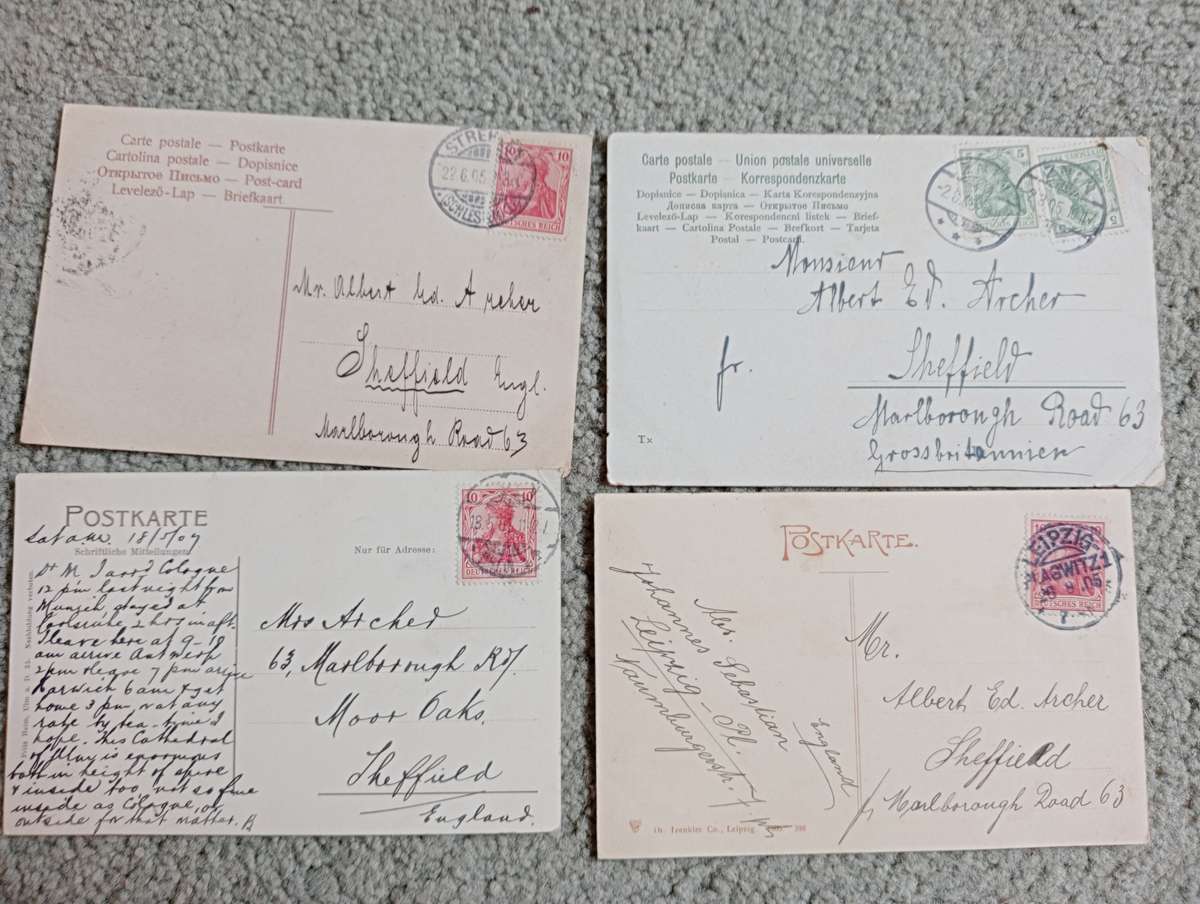 Carte postale — Postkarte
Cartolina postale — Dopisnice
Открытое Письмо — Post-card
Levelező-Lap — Briefkaart
STREHLEN
22.6.05
SCHLESIEN
10 10
DEUTSCHES REICH
Mr. Albert Ed. Archer
Sheffield Engl.
Marlborough Road 63
Carte postale — Union postale universelle
Postkarte — Korrespondenzkarte
Dopisnice — Dopisnica — Karta Korespondencyjna
Дописна карта — Открытое Письмо
Levelező-Lap — Korespondencni listek — Brief-
kaart — Cartolina Postale — Brefkort — Tarjeta
Postal — Postcard.
5
5
Monsieur
Albert Ed. Archer
fr. Sheffield
Marlborough Road 63
Tx
Grossbritannien
POSTKARTE
18/5/07
Schriftliche Mitteilungen
Nur für Adresse:
10 10
DEUTSCHES REICH
Dr M. Cologne
12 pm last night from
Munich stayed at
Carlsruhe 2 hrs in aft.
I leave here at 9-18
am arrive Antwerp
2 pm & leave 7 pm arrive
Harwich 6 am & get
home 3 pm, or at any
rate by tea-time I
hope. This Cathedral
of Ulm is enormous
both in height of spire
& inside too, not so fine
inside as Cologne, or
outside for that matter. B
Mrs Archer
63, Marlborough Rd.
Moor Oaks.
Sheffield
England.
POSTKARTE.
LEIPZIG-
PLAGWITZ 1
05
DEUTSCHES REICH
Abs. Sebastian
Johannes
Leipzig - Pl.
Naumburgerstr. 7
Mr.
Albert Ed Archer
Sheffield
England
Marlborough Road 63
Dr. Trenkler Co., Leipzig